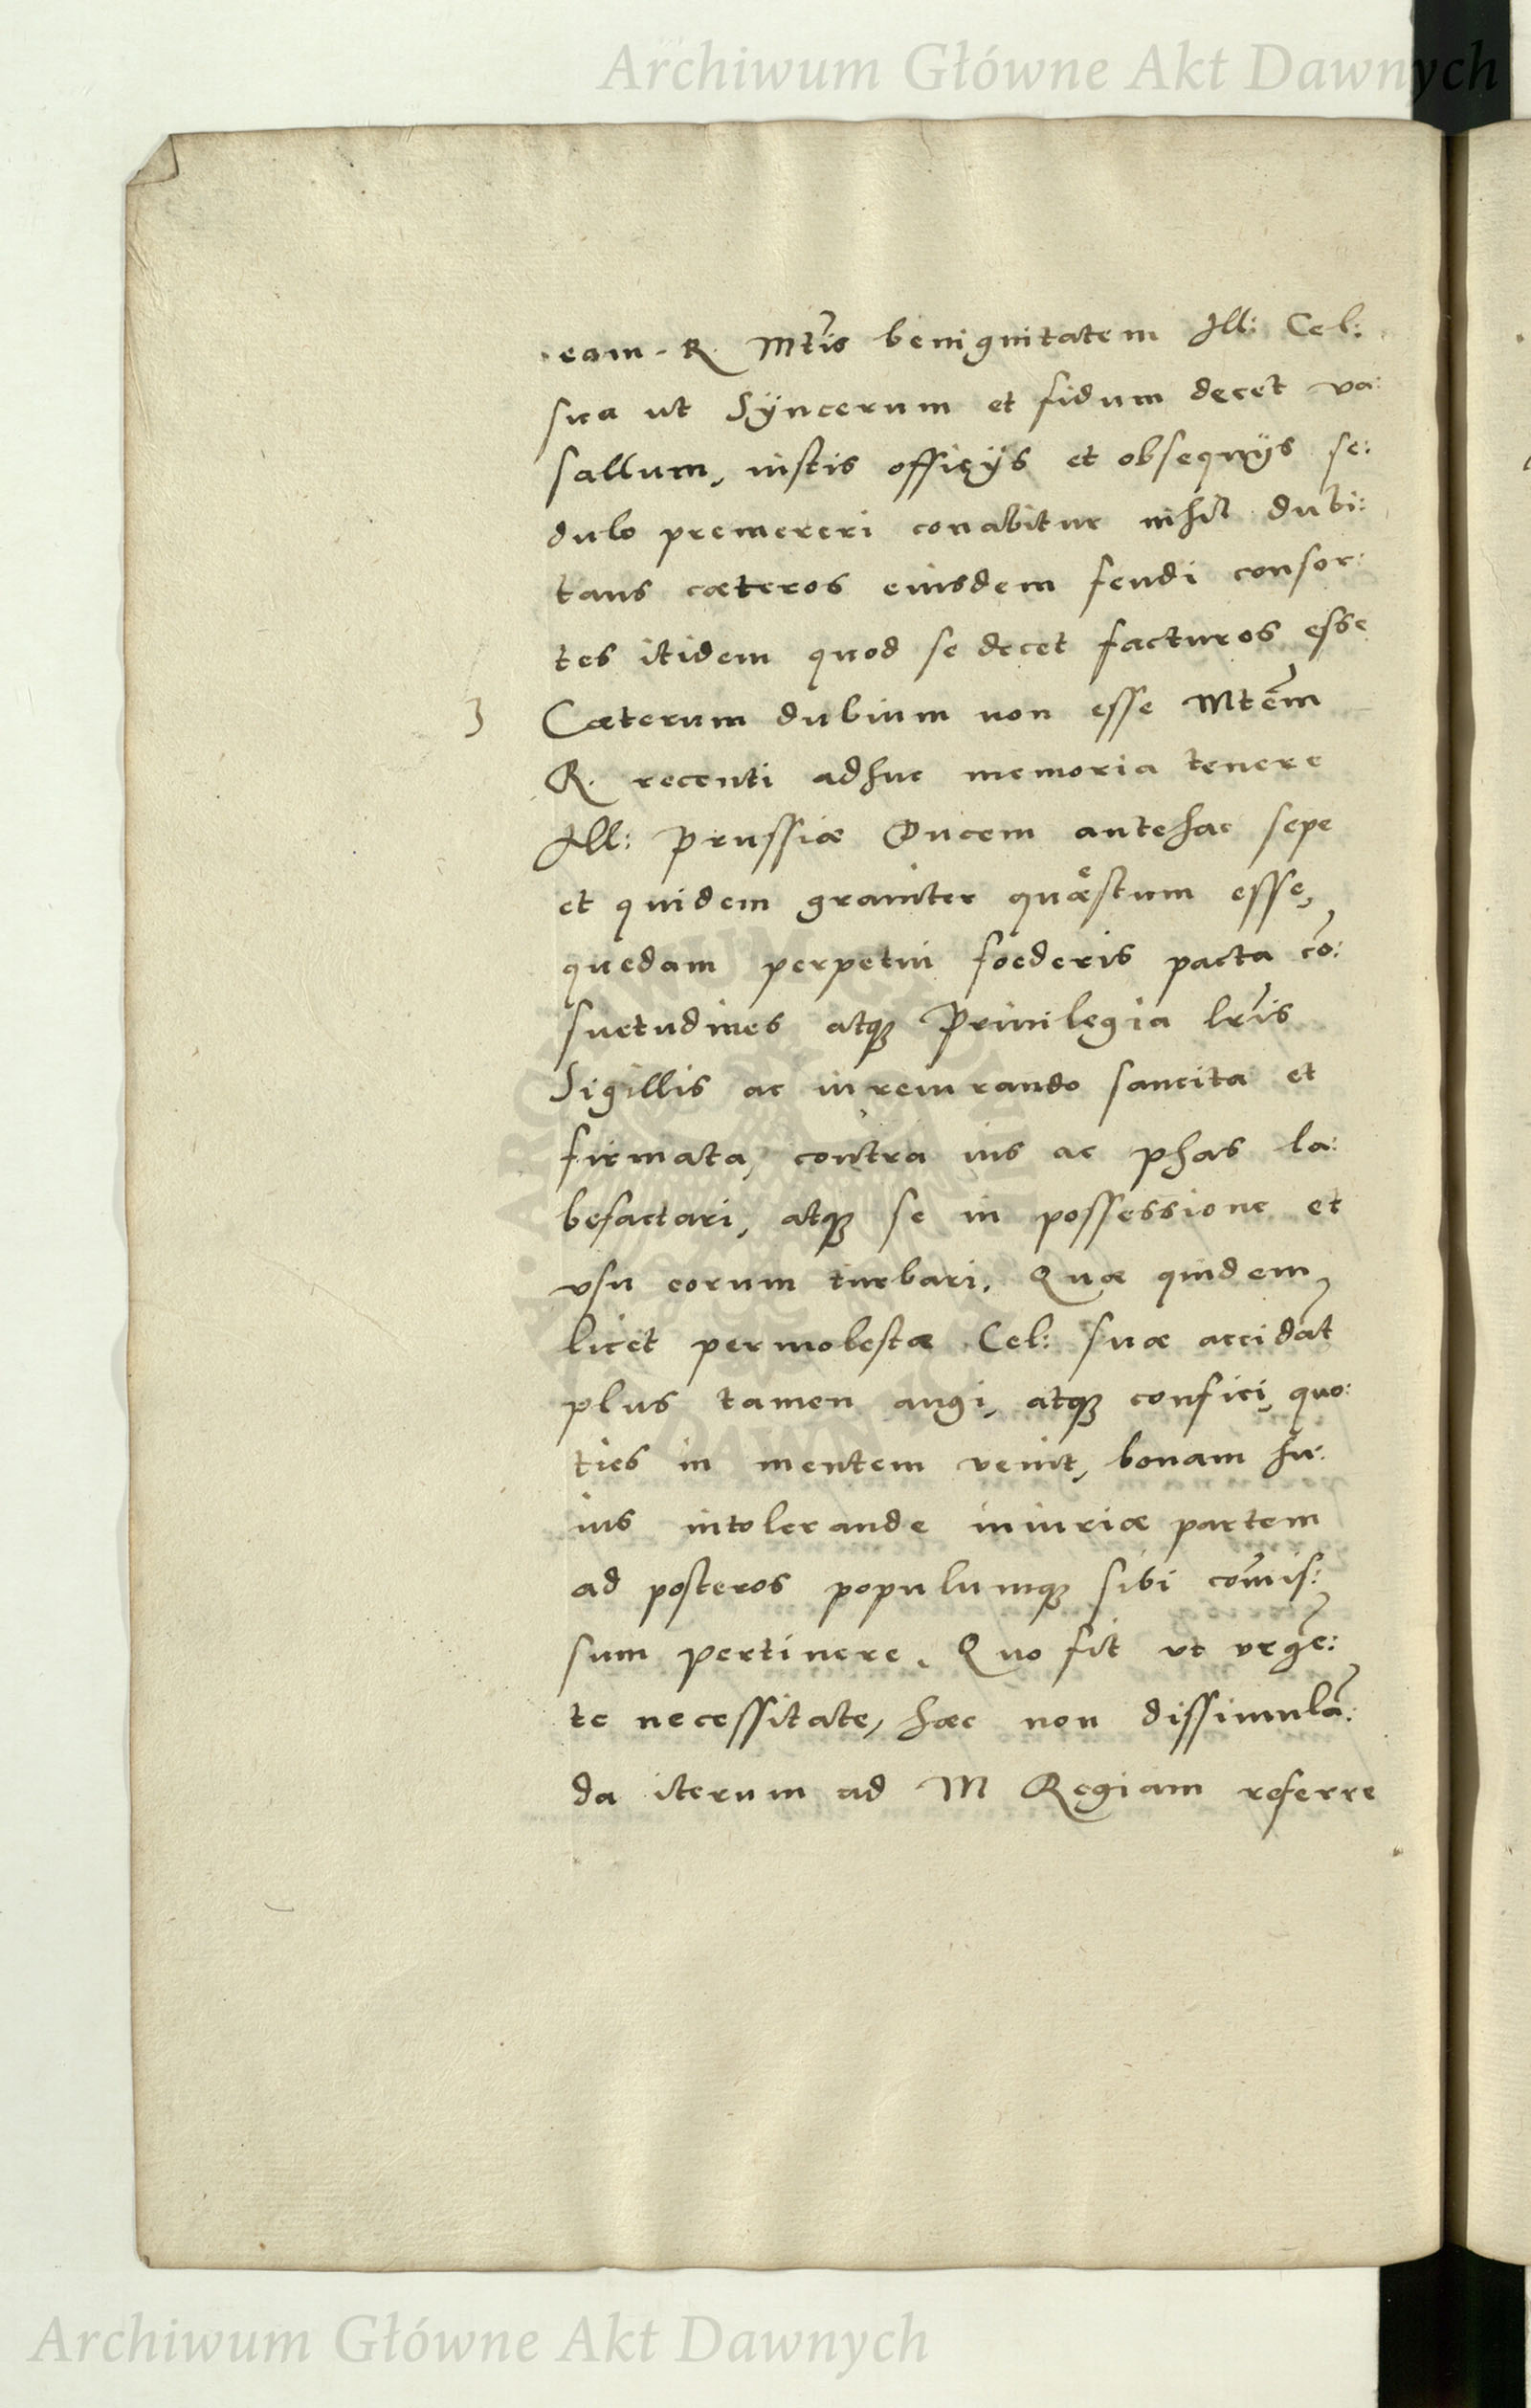 Archiwum Główne Akt Dawnych
eam R. Mtis benignitatem Ill: Cel:
sua ut Syncerum et fidum decet va:
sallum, iustis officijs et obsequijs se:
dulo premereri conabitur nihil dubi:
tans cæteros eiusdem feudi consor:
tes itidem quod se decet facturos esse
3 Cæterum dubium non esse Mtem
R. recenti adhuc memoria tenere
Ill: Prussiæ Ducem antehac sepe
et quidem grauiter quæstum esse,
quedam perpetui foederis pacta cō:
suetudines atq3 Priuilegia lris
Sigillis ac iureiurando sancita et
firmata, contra ius ac phas la:
befactari, atq3 se in possessione et
vsu eorum turbari. Quæ quidem
licet permolestæ Cel: suæ accidāt
plus tamen angi, atq3 confici, quo:
ties in mentem venit, bonam hu:
ius intolerande iniuriæ partem
ad posteros populumq3 sibi com̄is:
sum pertinere. Quo fit ut vrgē:
te necessitate, hæc non dissimulā:
da iterum ad M Regiam referre
Archiwum Główne Akt Dawnych